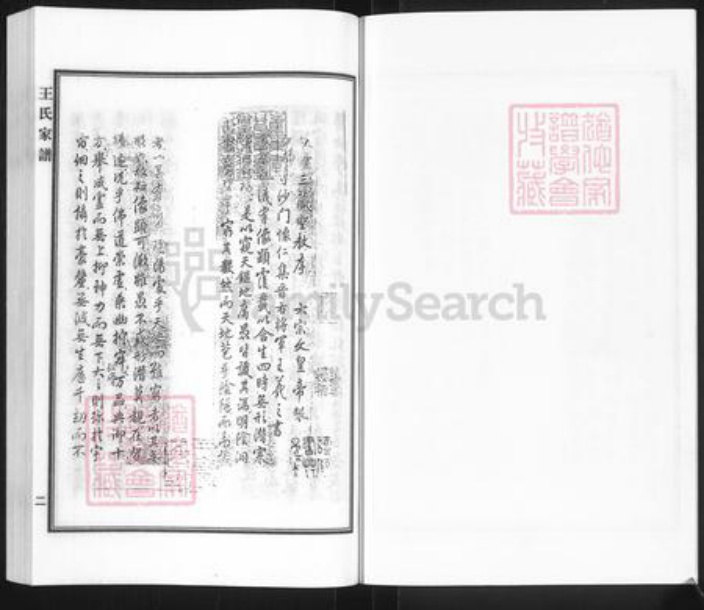 王氏家譜
二
唐三藏聖教序 太宗文皇帝製
寺沙門懷仁集晉右將軍王羲之書
儀有像顯覆載以含生四時無形潛寒
是以窺天鑑地庸愚皆識其端明陰洞
窮其數然而天地苞乎陰陽而易識
者以其 陰陽處乎天地而難窮者以其無
故知像顯可徵雖愚不惑形潛莫覩在智
猶迷況乎佛道崇虛乘幽控寂 萬品典御十
方舉威靈而無上抑神力而無下大之則彌於宇
宙細之則攝於毫釐無滅無生歷千劫而不
譜學會
收藏
FamilySearch